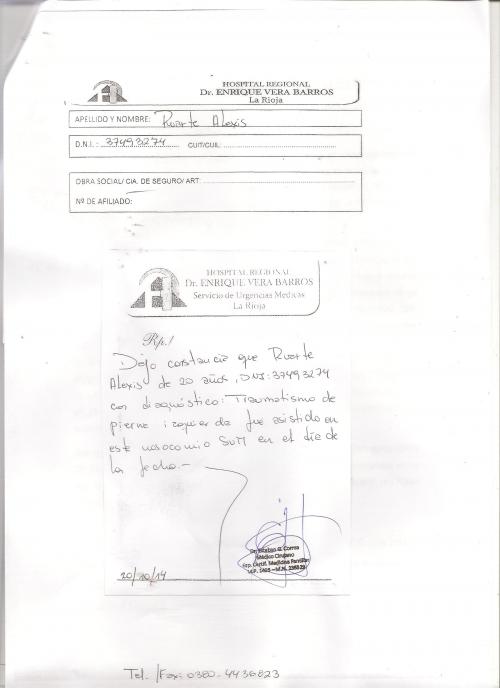 HOSPITAL REGIONAL
Dr. ENRIQUE VERA BARROS
La Rioja
APELLIDO Y NOMBRE: Ruarte Alexis
D.N.I.- 37493274 CUIT/CUIL:
OBRA SOCIAL/ CIA. DE SEGURO/ ART:
Nº DE AFILIADO:
HOSPITAL REGIONAL
Dr. ENRIQUE VERA BARROS
Servicio de Urgencias Medicas
La Rioja
Rp./
Dejo constancia que Ruarte
Alexis de 20 años, DNI: 37493274
con diagnóstico: Traumatismo de
pierna izquierda fue asistido en
este nosocomio SUM en el día de
la fecha.-
Dr. Esteban G. Correa
Médico Cirujano
Esp. Certif. Medicina Familiar
20/10/14
Tel./Fax: 0380-4436823